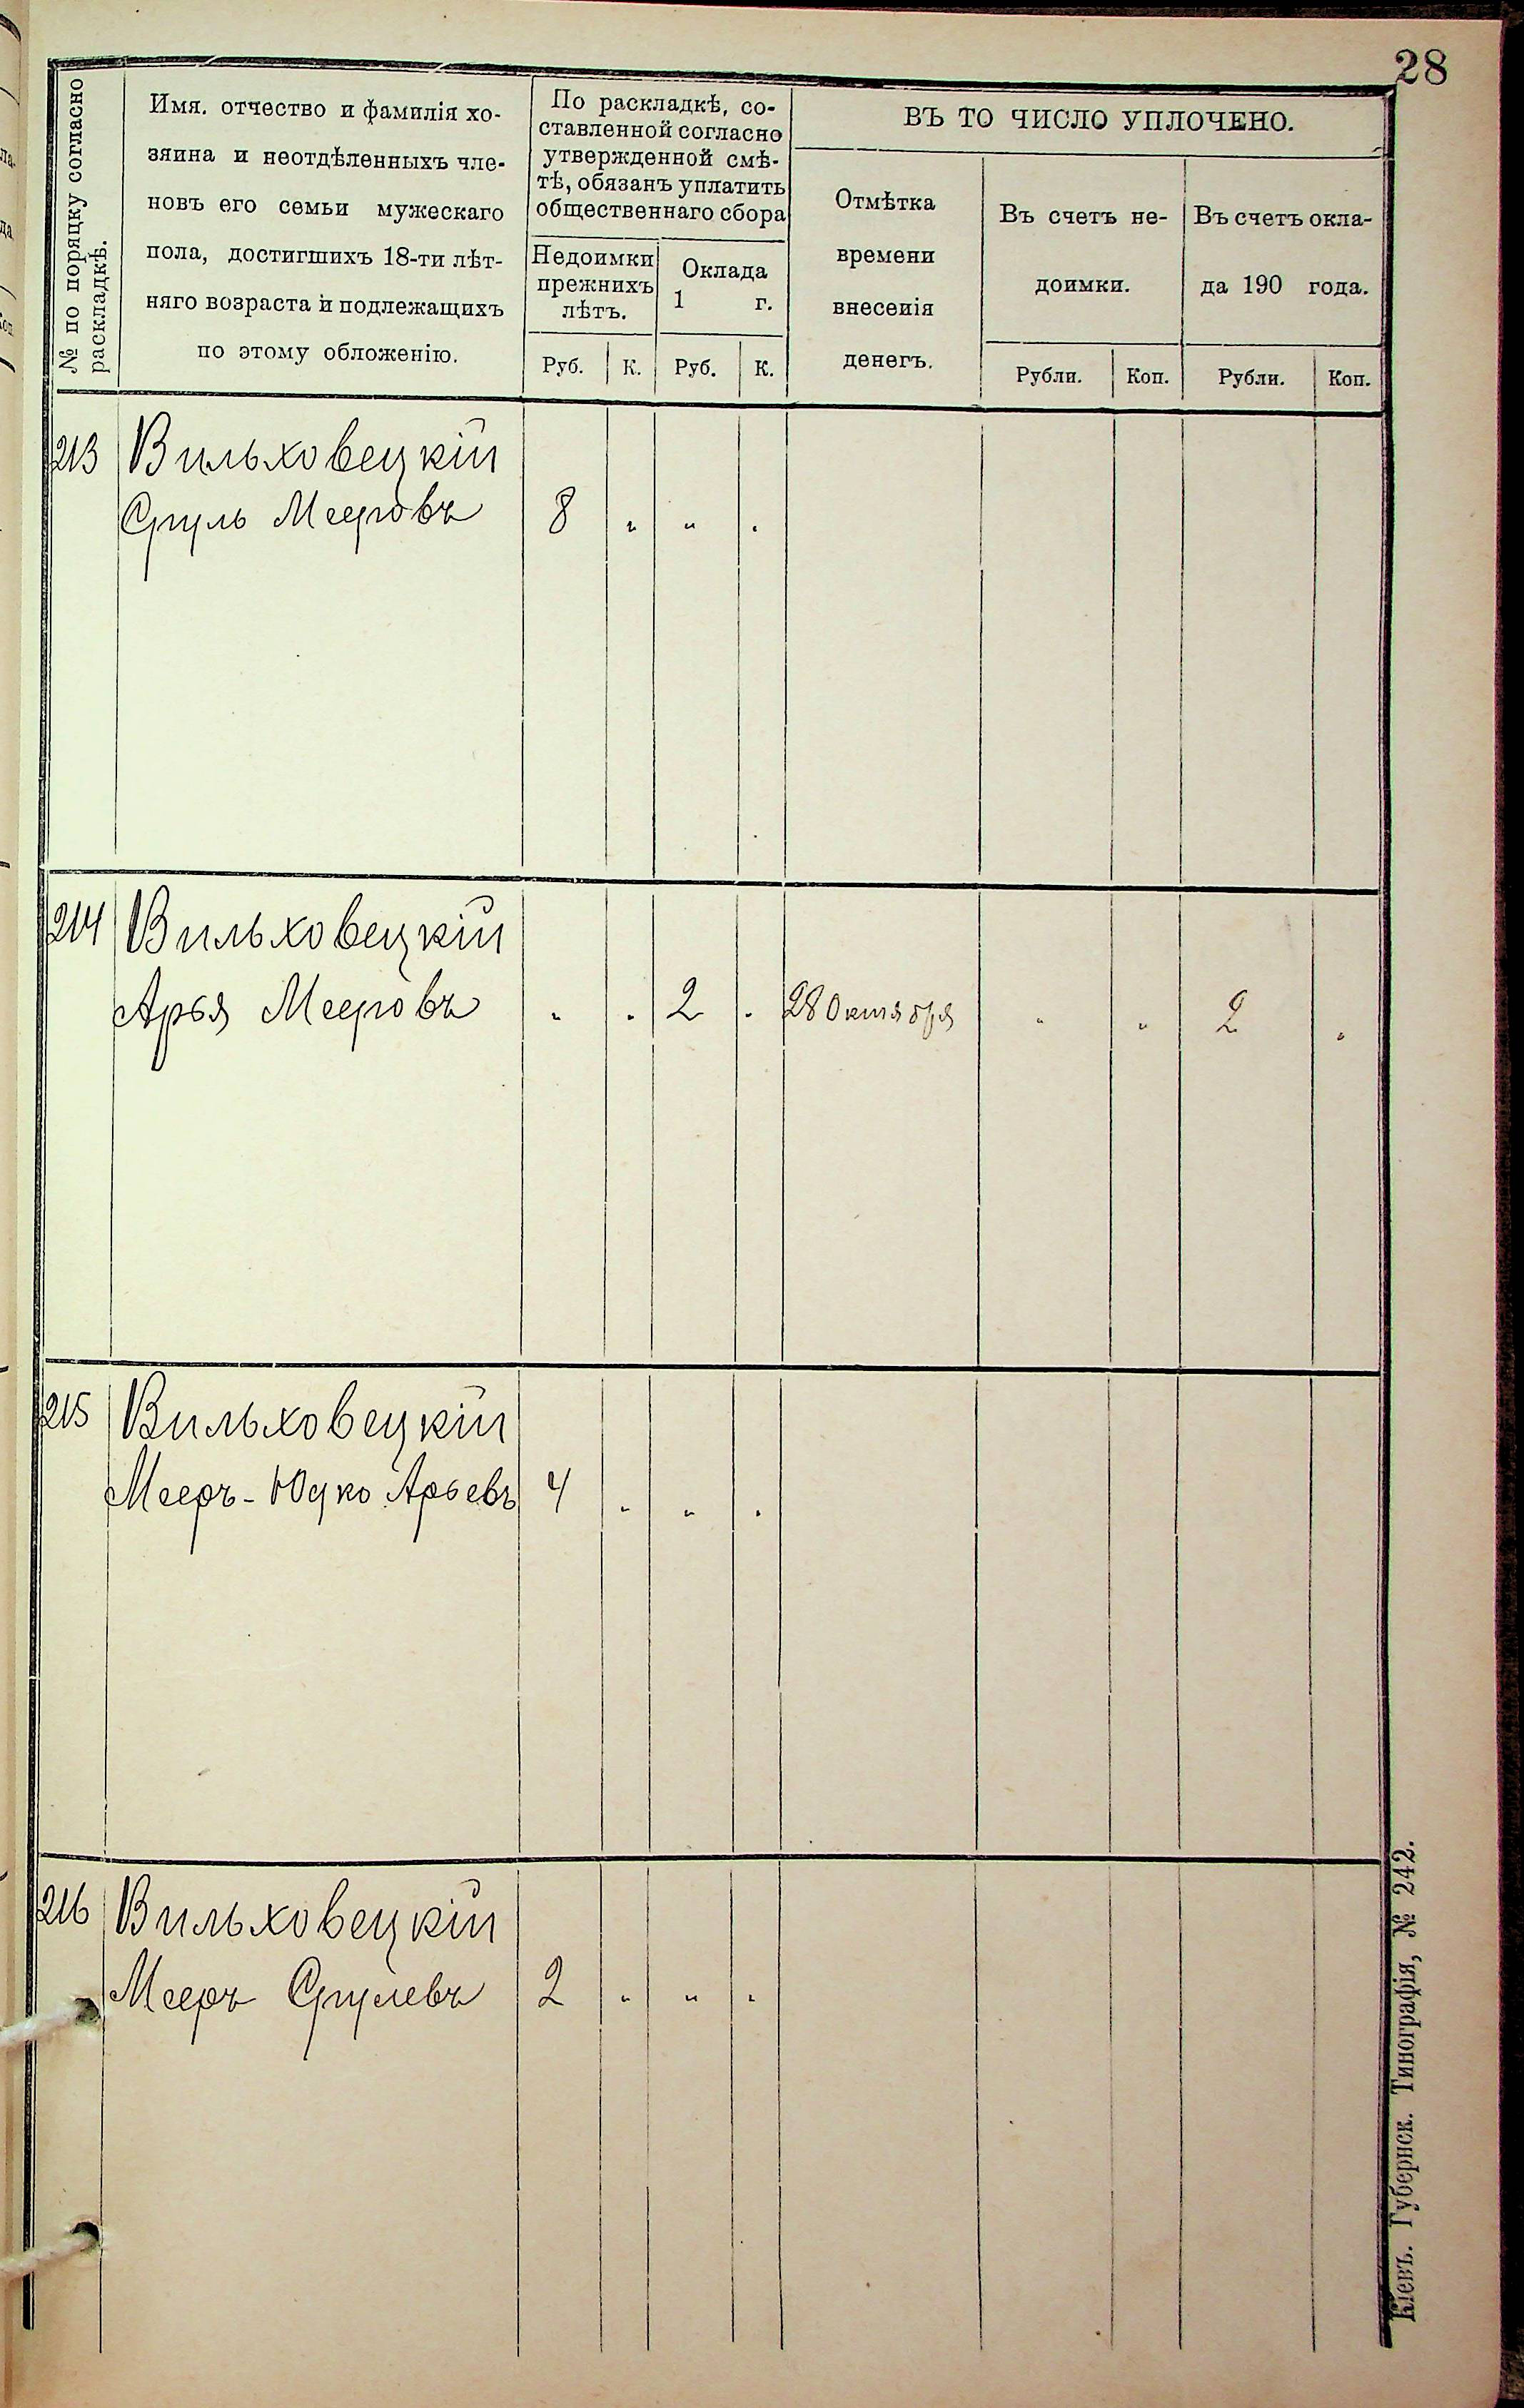 28
№ по порядку согласно
раскладкѣ.
Имя. отчество и фамилія хо-
зяина и неотдѣленныхъ чле-
новъ его семьи мужескаго
пола, достигшихъ 18-ти лѣт-
няго возраста и подлежащихъ
по этому обложенію.
По раскладкѣ, со-
ставленной согласно
утвержденной смѣ-
тѣ, обязанъ уплатить
общественнаго сбора
Недоимки
прежнихъ
лѣтъ.
Оклада
1 г.
Руб. К. Руб. К.
ВЪ ТО ЧИСЛО УПЛОЧЕНО.
Отмѣтка
времени
внесенія
денегъ.
Въ счетъ не-
доимки.
Въ счетъ окла-
да 190 года.
Рубли. Коп. Рубли. Коп.
213 Вильховецкій
Сруль Мееровъ 8 „ „ „
214 Вильховецкій
Арья Мееровъ „ „ 2 „ 28 Октября „ „ 2 „
215 Вильховецкій
Мееръ-Юдко Арьевъ 4 „ „ „
216 Вильховецкій
Мееръ Срулевъ 2 „ „ „
Кіевъ. Губернск. Тинографія, № 242.